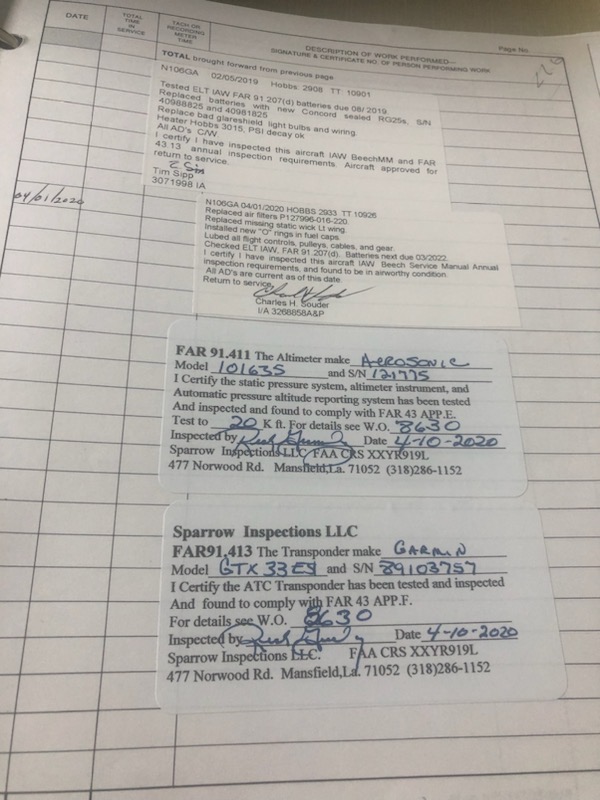 DATE
TOTAL TIME IN SERVICE
TACH OR RECORDING METER TIME
DESCRIPTION OF WORK PERFORMED—
SIGNATURE & CERTIFICATE NO. OF PERSON PERFORMING WORK
Page No.
TOTAL brought forward from previous page
N106GA 02/05/2019 Hobbs: 2908 TT 10901
Tested ELT IAW FAR 91 207(d) batteries due 08/ 2019
Replaced batteries with new Concord sealed RG25s, S/N
40988825 and 40981825
Replace bad glareshield light bulbs and wiring.
Heater Hobbs 3015, PSI decay ok
All AD's C/W.
I certify I have inspected this aircraft IAW BeechMM and FAR
43.13 annual inspection requirements. Aircraft approved for
return to service.
Tim Sipp
3071998 IA
04/01/2020
N106GA 04/01/2020 HOBBS 2933 TT 10926
Replaced air filters P127996-016-220.
Replaced missing static wick Lt wing.
Installed new "O" rings in fuel caps.
Lubed all flight controls, pulleys, cables, and gear.
Checked ELT IAW, FAR 91.207(d). Batteries next due 03/2022.
I certify I have inspected this aircraft IAW Beech Service Manual Annual
inspection requirements, and found to be in airworthy condition.
All AD's are current as of this date.
Return to service.
Charles H. Souder
I/A 3268858A&P
FAR 91.411 The Altimeter make AEROSONIC
Model 101635 and S/N 121775
I Certify the static pressure system, altimeter instrument, and
Automatic pressure altitude reporting system has been tested
And inspected and found to comply with FAR 43 APP.E.
Test to 20 K ft. For details see W.O. 8630
Inspected by Date 4-10-2020
Sparrow Inspections LLC FAA CRS XXYR919L
477 Norwood Rd. Mansfield,La. 71052 (318)286-1152
Sparrow Inspections LLC
FAR91,413 The Transponder make GARMIN
Model GTX 33ES and S/N 89103757
I Certify the ATC Transponder has been tested and inspected
And found to comply with FAR 43 APP.F.
For details see W.O. 8630
Inspected by Date 4-10-2020
Sparrow Inspections LLC. FAA CRS XXYR919L
477 Norwood Rd. Mansfield,La. 71052 (318)286-1152